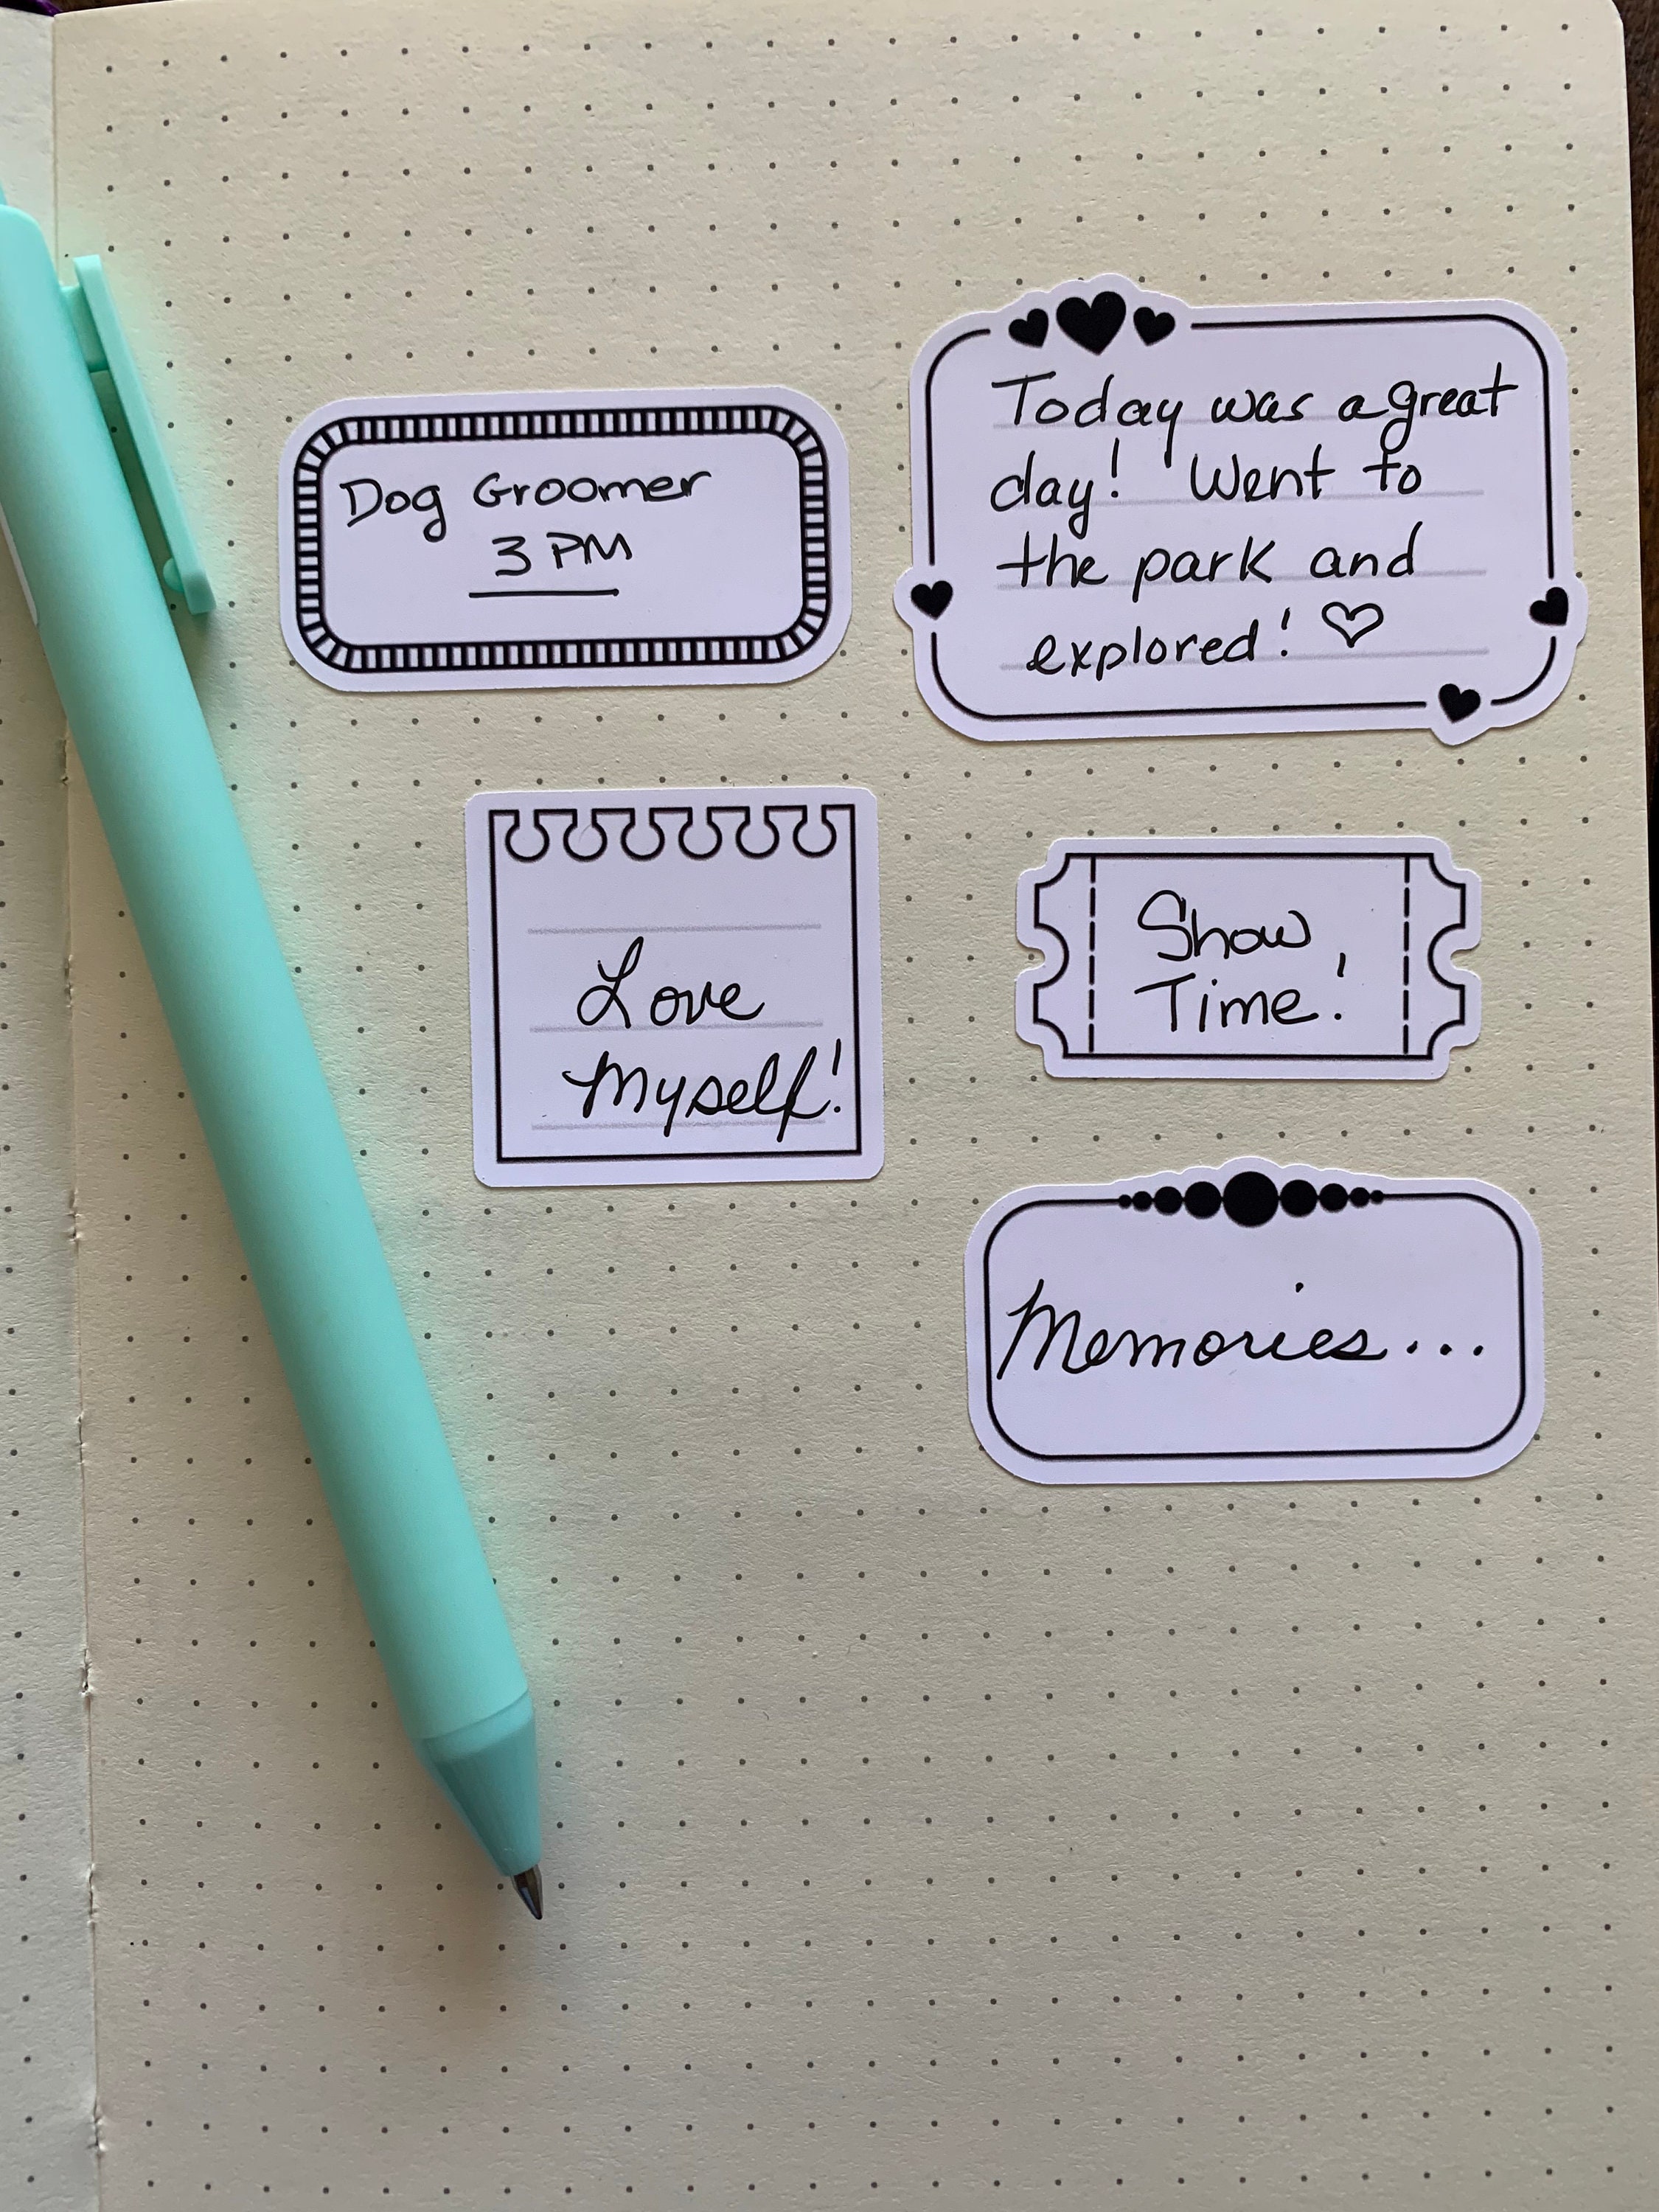 Dog Groomer
3 PM
Today was a great
day! Went to
the park and
explored! ♡
Love
Myself!
Show
Time!
Memories...